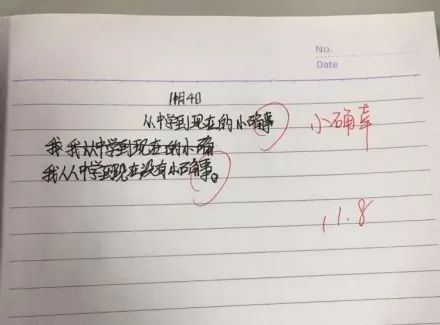 No.
Date
11月4日
从中学到现在的小确事
小确幸
我 我从中学到现在的小确
我从从中学到现在没有小确事。
11.8